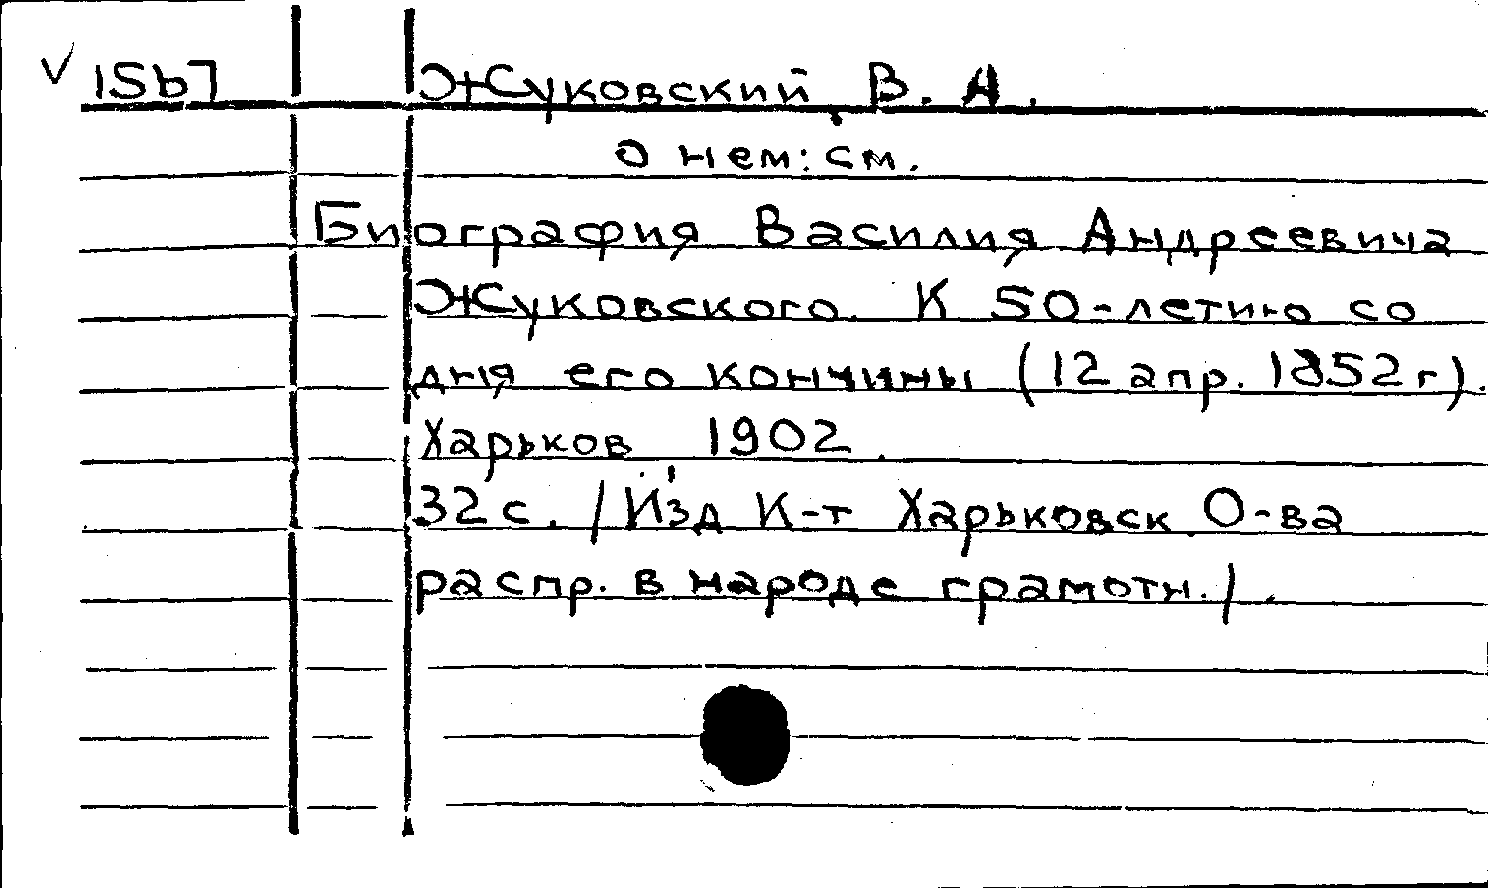 √ 1567 Жуковский В. А.
о нем: см.
Биография Василия Андреевича
Жуковского. К 50-летию со
дня его кончины (12 апр. 1852 г).
Харьков 1902.
32 с. /Изд К-т Харьковск. О-ва
распр. в народе грамотн./.